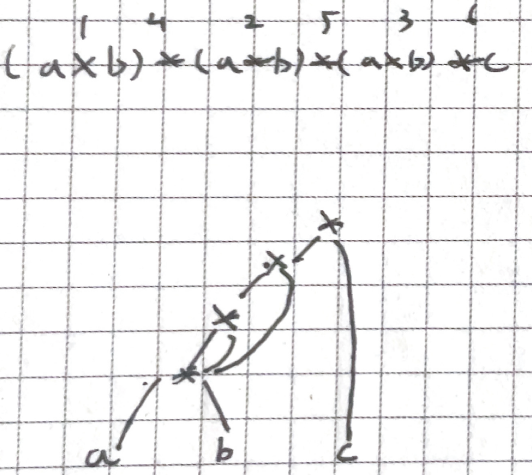 1 4 2 5 3 6
(a×b) * (a*b) * (a×b) * c
×
×
×
*
a b c